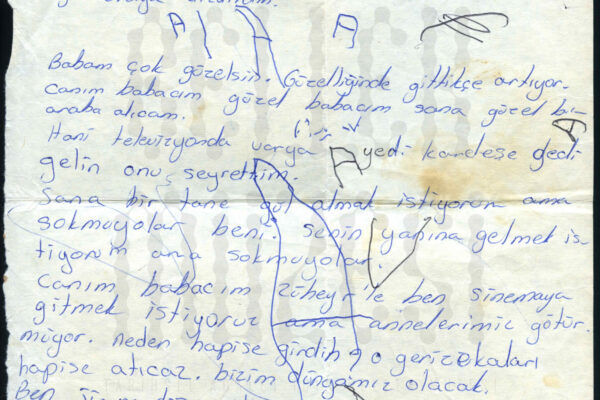 A A A
Babam çok güzelsin. Güzelliğinde gittikçe artıyor.
canım babacım güzel babacım sana güzel bi
araba alıcam. A
Hani televizyonda varya A yedi kardeşe yedi
gelin onu seyrettim.
Sana bir tane gül almak istiyorum ama
sokmuyolar beni. Senin yanına gelmek is
tiyorım ama sokmuyolar.
Canım babacım züheyr'le ben sinemaya
gitmek istiyoruz ama annelerimiz götür
müyor. neden hapise girdin o gerizekaları
hapise atıcaz. bizim dünyamız olacak.
Ben